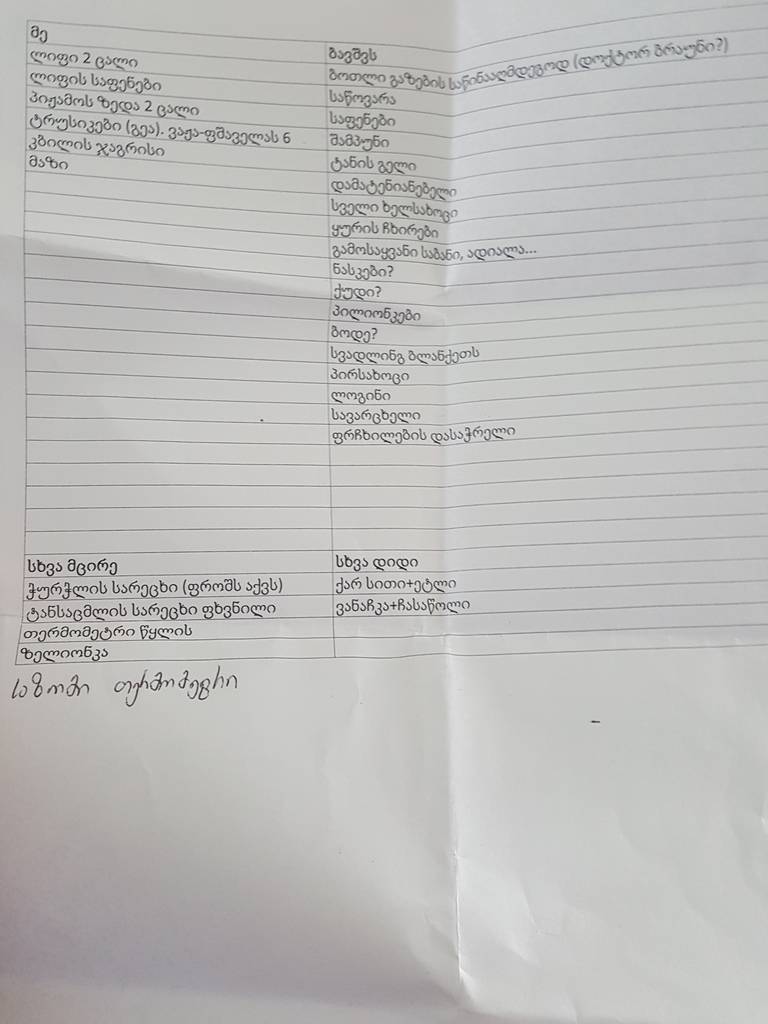 მე
ბავშვს
ლიფი 2 ცალი
ბოთლი გაზების საწინააღმდეგოდ (დოქტორ ბრაუნი?)
ლიფის საფენები
საწოვარა
პიჟამოს ზედა 2 ცალი
საფენები
ტრუსიკები (გეა). ვაჟა-ფშაველას 6
შამპუნი
კბილის ჯაგრისი
ტანის გელი
მაზი
დამატენიანებელი
სველი ხელსახოცი
ყურის ჩხირები
გამოსაყვანი საბანი, ადიალა...
ნასკები?
ქუდი?
პილიონკები
ბოდე?
სვადლინგ ბლანქეთს
პირსახოცი
ლოგინი
სავარცხელი
ფრჩხილების დასაჭრელი
სხვა მცირე
სხვა დიდი
ჭურჭლის სარეცხი (ფროშს აქვს)
ქარ სითი+ეტლი
ტანსაცმლის სარეცხი ფხვნილი
ვანაჩკა+ჩასაწოლი
თერმომეტრი წყლის
ზელიონკა
საზომი თერმომეტრი